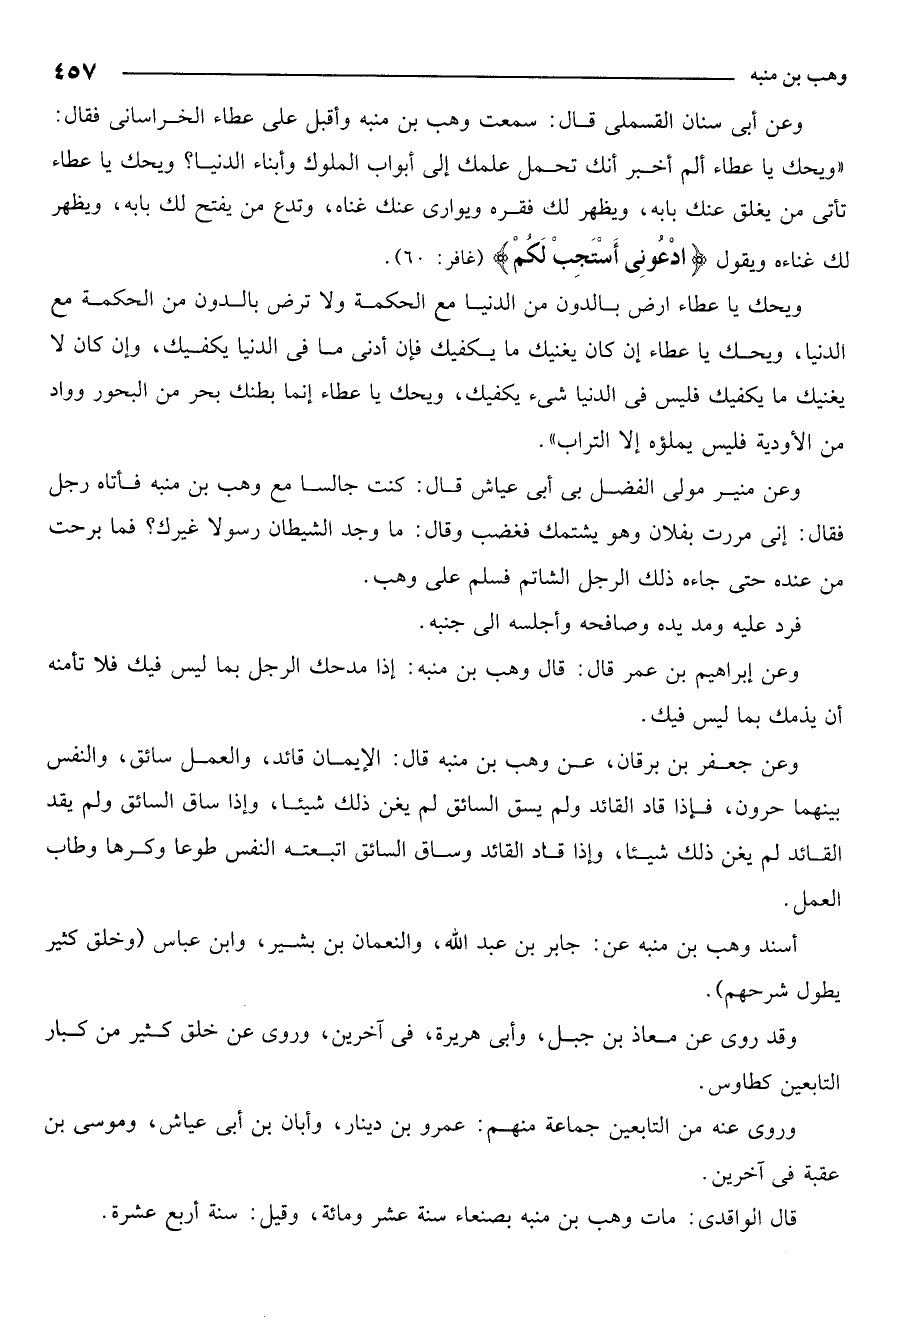 وهب بن منبه ٤٥٧
وعن أبى سنان القسملى قـال: سمعت وهب بن منبه وأقبل على عطاء الخـراسانى فقال:
«ويحك يا عطاء ألم أخـبر أنك تحـمل علمك إلى أبواب الملوك وأبناء الدنيـا؟ ويحك يا عطاء
تأتى من يغلق عنك بابه، ويظهر لك فقـره ويوارى عنك غناه، وتدع من يفتح لك بابه، ويظهر
لك غناءه ويقول ﴿ادْعُونِى أَسْتَجِبْ لَكُمْ﴾ (غافر: ٦٠).
ويحك يا عطاء ارض بـالدون من الدنيـا مع الحكمـة ولا ترض بالـدون من الحكمـة مع
الدنيا، ويحـك يا عطاء إن كان يغنيك ما يـكفيك فإن أدنى مـا فى الدنيا يكفـيك، وإن كان لا
يغنيك ما يكفيك فليس فى الدنيا شىء يكفيك، ويحك يا عطاء إنما بطنك بحر من البحور وواد
من الأودية فليس يملؤه إلا التراب».
وعن منيـر مولى الفضـل بى أبى عياش قـال: كنت جالسـا مع وهب بن منبه فـأتاه رجل
فقال: إنى مررت بفلان وهو يشتمك فغضب وقال: ما وجد الشيطان رسولا غيرك؟ فما برحت
من عنده حتى جاءه ذلك الرجل الشاتم فسلم على وهب.
فرد عليه ومد يده وصافحه وأجلسه الى جنبه.
وعن إبراهيم بن عمر قال: قال وهب بن منبه: إذا مدحك الرجل بما ليس فيك فلا تأمنه
أن يذمك بما ليس فيك.
وعن جعـفر بن برقان، عـن وهب بن منبه قال: الإيمـان قائد، والعمـل سائق، والنفس
بينهما حرون، فـإذا قاد القائد ولم يسق السائق لم يغن ذلك شيئـا، وإذا ساق السائق ولم يقد
القـائد لم يغن ذلك شيـئا، وإذا قـاد القائد وسـاق السائق اتبـعتـه النفس طوعا وكـرها وطاب
العمل.
أسند وهب بن منبه عن: جابر بن عبد الله، والنعمان بن بشـير، وابن عباس (وخلق كثير
يطول شرحهم).
وقد روى عن مـعاذ بن جبـل، وأبى هريرة، فى آخرين، وروى عن خلق كـثير من كـبار
التابعين كطاوس.
وروى عنه من التابعين جماعة منهـم: عمرو بن دينار، وأبان بن أبى عياش، وموسى بن
عقبة فى آخرين.
قال الواقدى: مات وهب بن منبه بصنعاء سنة عشر ومائة، وقيل: سنة أربع عشرة.